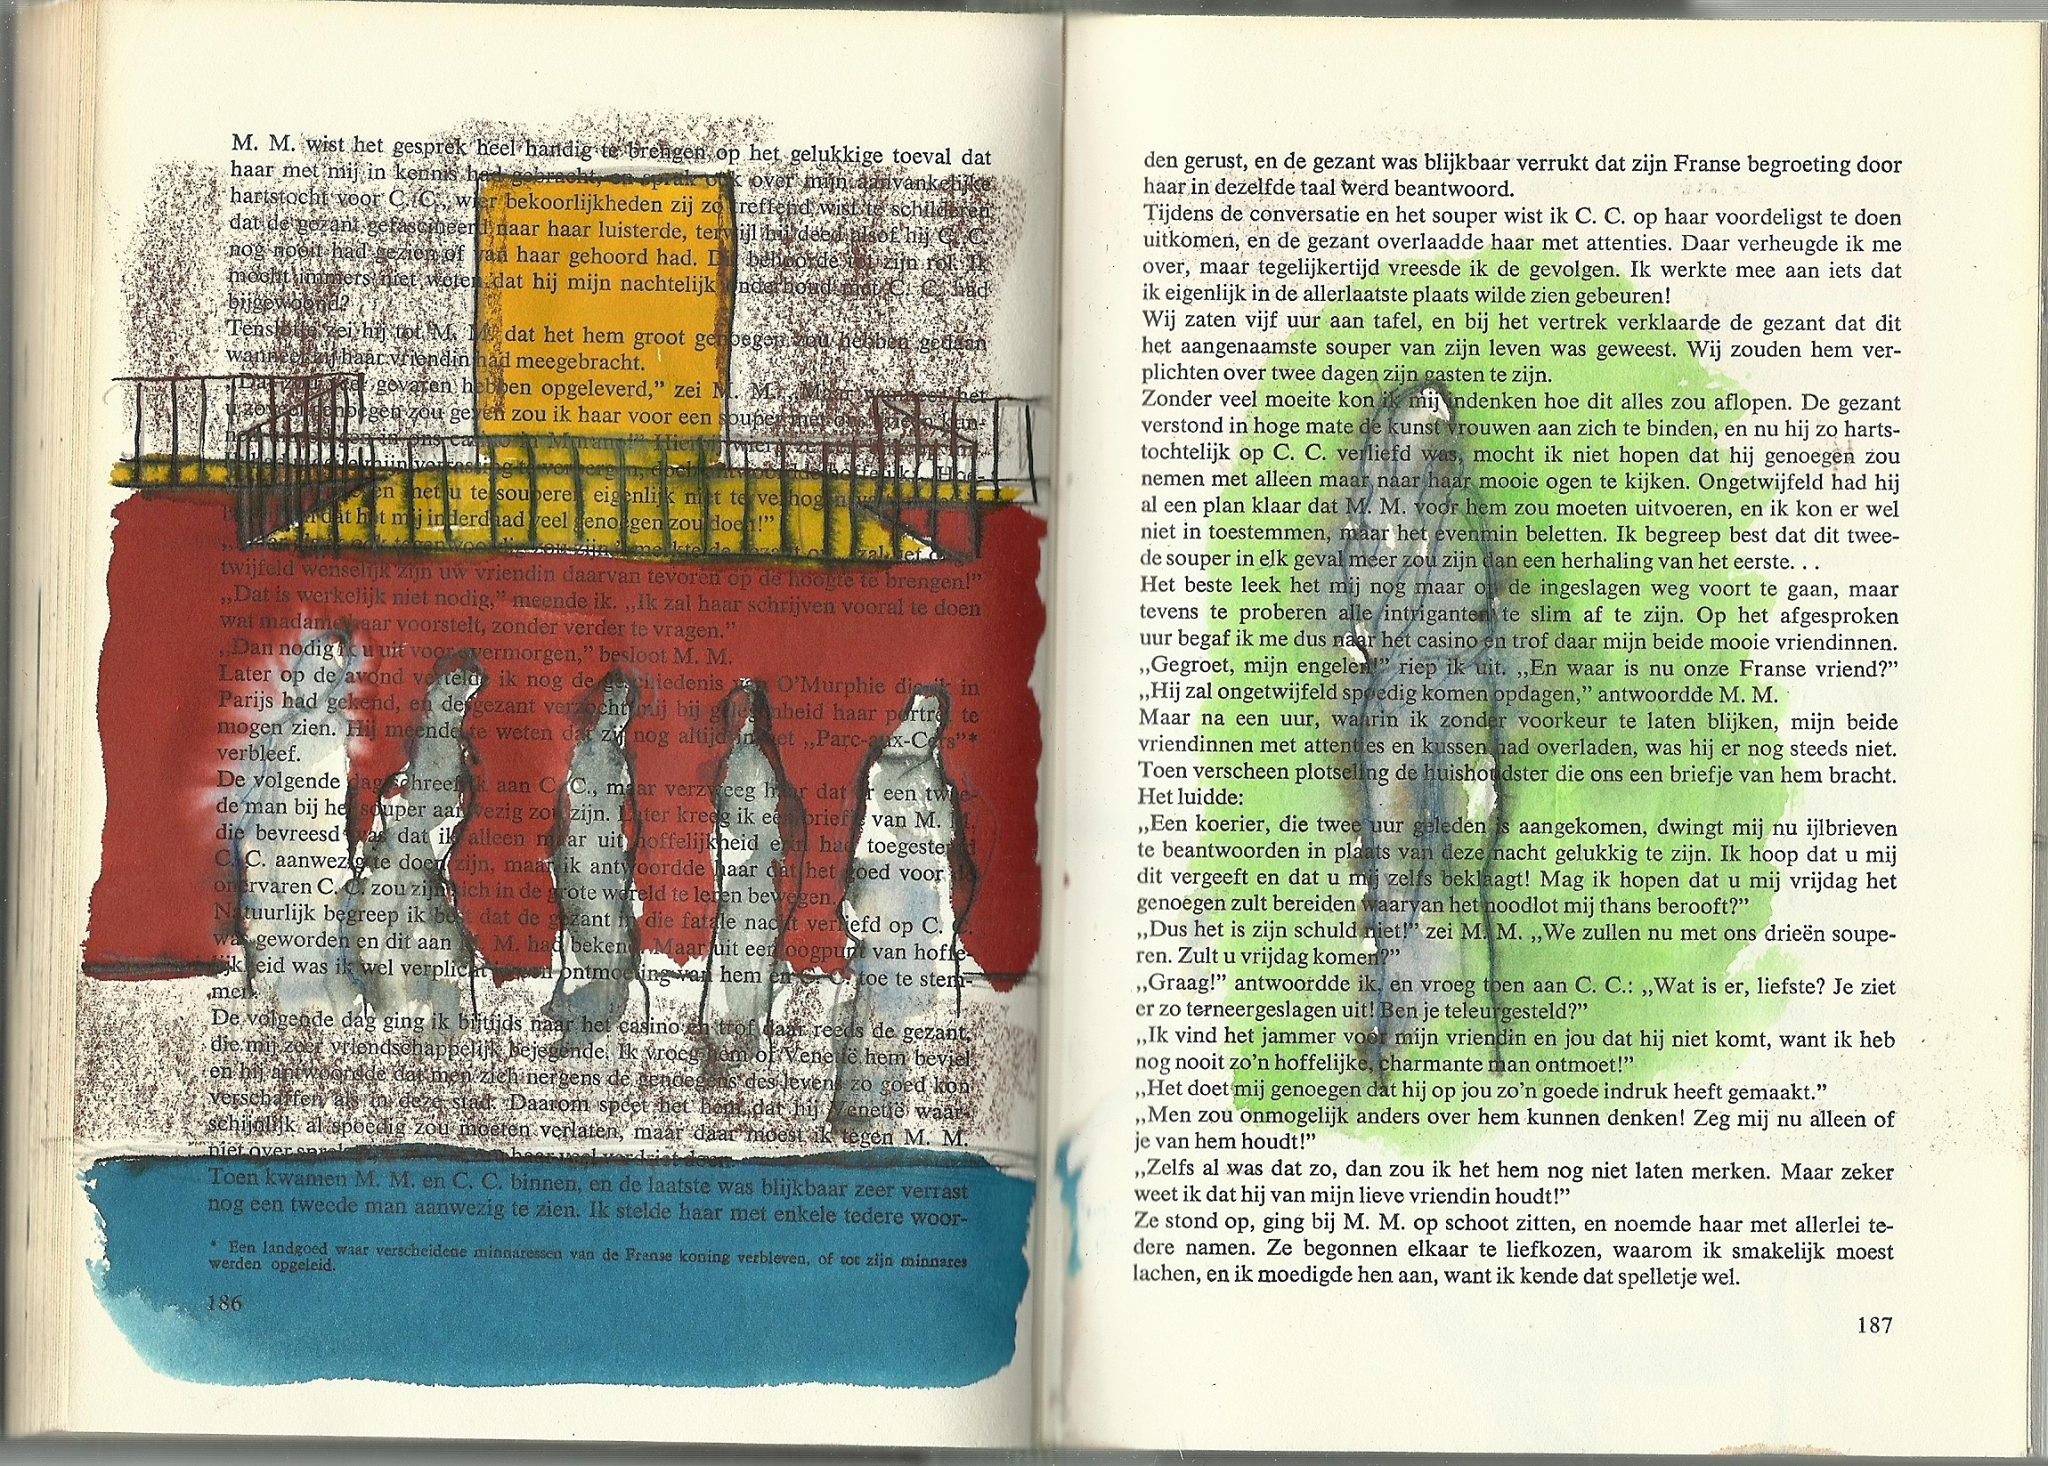 M. M. wist het gesprek heel handig te brengen op het gelukkige toeval dat
haar met mij in kennis had gebracht, en sprak ook over mijn aanvankelijke
hartstocht voor C. C., wier bekoorlijkheden zij zo treffend wist te schilderen
dat de gezant gefascineerd naar haar luisterde, terwijl hij deed alsof hij C. C.
nog nooit had gezien of van haar gehoord had. Dit behoorde tot zijn rol. Ik
mocht immers niet weten dat hij mijn nachtelijk onderhoud met C. C. had
bijgewoond?
Tenslotte zei hij tot M. M. dat het hem groot genoegen zou hebben gedaan
wanneer zij haar vriendin had meegebracht.
„Dat zou zeer gevaren hebben opgeleverd,” zei M. M. „Maar wanneer het
u zoveel genoegen zou geven zou ik haar voor een souper met ons drieën kun-
in ons casino in Murano!” Hier
mijn verrassing te verbergen, doch
met u te souperen eigenlijk niet te verhogen
dat het mij inderdaad veel genoegen zou doen!”
zal het
twijfeld wenselijk zijn uw vriendin daarvan tevoren op de hoogte te brengen!”
„Dat is werkelijk niet nodig,” meende ik. „Ik zal haar schrijven vooral te doen
wat madame haar voorstelt, zonder verder te vragen.”
„Dan nodig ik u uit voor overmorgen,” besloot M. M.
Later op de avond vertelde ik nog de geschiedenis van O’Murphie die ik in
Parijs had gekend, en de gezant verzocht mij bij gelegenheid haar portret te
mogen zien. Hij meende te weten dat zij nog altijd in het „Parc-aux-Cers”*
verbleef.
De volgende dag schreef ik aan C. C., maar verzweeg haar dat er een twee-
de man bij het souper aanwezig zou zijn. Later kreeg ik een briefje van M. M.
die bevreesd was dat ik alleen maar uit hoffelijkheid erin had toegestemd
C. C. aanwezig te doen zijn, maar ik antwoordde haar dat het goed voor de
onervaren C. C. zou zijn zich in de grote wereld te leren bewegen.
Natuurlijk begreep ik best dat de gezant in die fatale nacht verliefd op C. C.
was geworden en dit aan M. M. had bekend. Maar uit een oogpunt van hoffe-
lijkheid was ik wel verplicht in een ontmoeting van hem en C. C. toe te stem-
men.
De volgende dag ging ik bijtijds naar het casino en trof daar reeds de gezant,
die mij zeer vriendschappelijk bejegende. Ik vroeg hem of Venetië hem beviel
en hij antwoordde dat men zich nergens de genoegens des levens zo goed kon
verschaffen als in deze stad. Daarom speet het hem dat hij Venetië waar-
schijnlijk al spoedig zou moeten verlaten, maar daar moest ik tegen M. M.
niet over haar veel verdriet doen.
Toen kwamen M. M. en C. C. binnen, en de laatste was blijkbaar zeer verrast
nog een tweede man aanwezig te zien. Ik stelde haar met enkele tedere woor-
* Een landgoed waar verscheidene minnaressen van de Franse koning verbleven, of tot zijn minnares
werden opgeleid.
186
den gerust, en de gezant was blijkbaar verrukt dat zijn Franse begroeting door
haar in dezelfde taal werd beantwoord.
Tijdens de conversatie en het souper wist ik C. C. op haar voordeligst te doen
uitkomen, en de gezant overlaadde haar met attenties. Daar verheugde ik me
over, maar tegelijkertijd vreesde ik de gevolgen. Ik werkte mee aan iets dat
ik eigenlijk in de allerlaatste plaats wilde zien gebeuren!
Wij zaten vijf uur aan tafel, en bij het vertrek verklaarde de gezant dat dit
het aangenaamste souper van zijn leven was geweest. Wij zouden hem ver-
plichten over twee dagen zijn gasten te zijn.
Zonder veel moeite kon ik mij indenken hoe dit alles zou aflopen. De gezant
verstond in hoge mate de kunst vrouwen aan zich te binden, en nu hij zo harts-
tochtelijk op C. C. verliefd was, mocht ik niet hopen dat hij genoegen zou
nemen met alleen maar naar haar mooie ogen te kijken. Ongetwijfeld had hij
al een plan klaar dat M. M. voor hem zou moeten uitvoeren, en ik kon er wel
niet in toestemmen, maar het evenmin beletten. Ik begreep best dat dit twee-
de souper in elk geval meer zou zijn dan een herhaling van het eerste. . .
Het beste leek het mij nog maar op de ingeslagen weg voort te gaan, maar
tevens te proberen alle intriganten te slim af te zijn. Op het afgesproken
uur begaf ik me dus naar het casino en trof daar mijn beide mooie vriendinnen.
„Gegroet, mijn engelen!” riep ik uit. „En waar is nu onze Franse vriend?”
„Hij zal ongetwijfeld spoedig komen opdagen,” antwoordde M. M.
Maar na een uur, waarin ik zonder voorkeur te laten blijken, mijn beide
vriendinnen met attenties en kussen had overladen, was hij er nog steeds niet.
Toen verscheen plotseling de huishoudster die ons een briefje van hem bracht.
Het luidde:
„Een koerier, die twee uur geleden is aangekomen, dwingt mij nu ijlbrieven
te beantwoorden in plaats van deze nacht gelukkig te zijn. Ik hoop dat u mij
dit vergeeft en dat u mij zelfs beklaagt! Mag ik hopen dat u mij vrijdag het
genoegen zult bereiden waarvan het noodlot mij thans berooft?”
„Dus het is zijn schuld niet!” zei M. M. „We zullen nu met ons drieën soupe-
ren. Zult u vrijdag komen?”
„Graag!” antwoordde ik, en vroeg toen aan C. C.: „Wat is er, liefste? Je ziet
er zo terneergeslagen uit! Ben je teleurgesteld?”
„Ik vind het jammer voor mijn vriendin en jou dat hij niet komt, want ik heb
nog nooit zo’n hoffelijke, charmante man ontmoet!”
„Het doet mij genoegen dat hij op jou zo’n goede indruk heeft gemaakt.”
„Men zou onmogelijk anders over hem kunnen denken! Zeg mij nu alleen of
je van hem houdt!”
„Zelfs al was dat zo, dan zou ik het hem nog niet laten merken. Maar zeker
weet ik dat hij van mijn lieve vriendin houdt!”
Ze stond op, ging bij M. M. op schoot zitten, en noemde haar met allerlei te-
dere namen. Ze begonnen elkaar te liefkozen, waarom ik smakelijk moest
lachen, en ik moedigde hen aan, want ik kende dat spelletje wel.
187